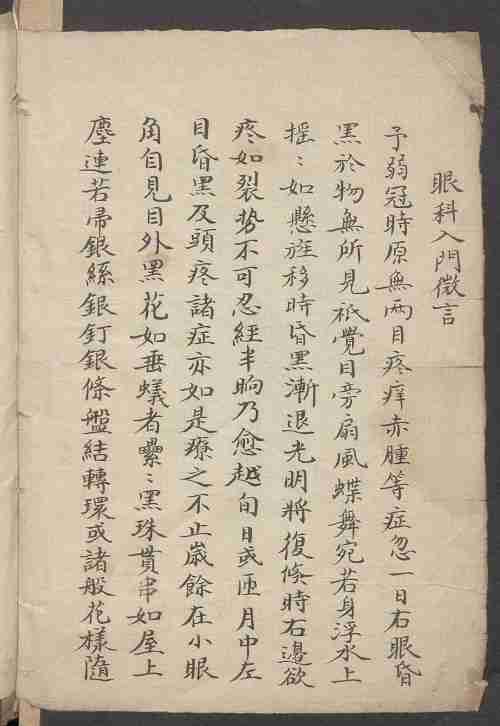 眼科入門微言
予弱冠時原無兩目疼痒赤腫等症忽一日右眼昏
黑於物無所見祇覺目旁扇風蝶舞宛若身浮水上
搖〻如懸旌移時昏黑漸退光明將復倏時右邊欲
疼如裂勢不可忍經半晌乃愈越旬日或匝月中左
目昏黑及頭疼諸症亦如是療之不止歲餘在小眼
角自見目外黑花如垂蟻者纍〻黑珠貫串如屋上
塵連若帚銀絲銀釘銀條盤結轉環或諸般花樣隨